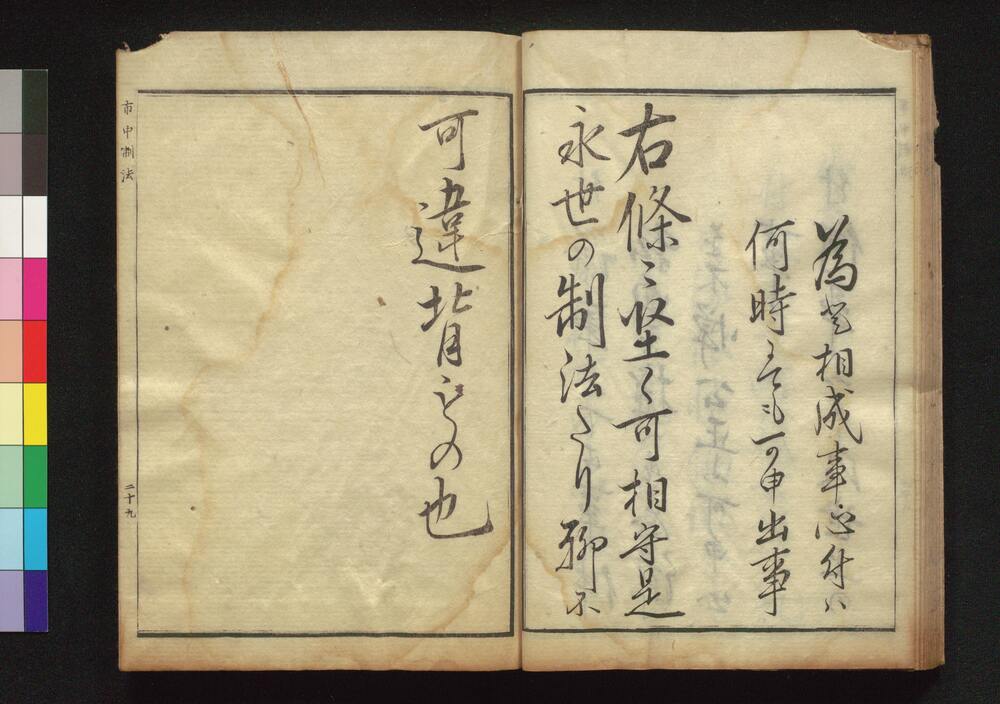 為と相成事心付ハ
何時にても可申出事
右條々堅く可相守是
永世の制法たり聊不
可違背もの也
市中制法
二十九